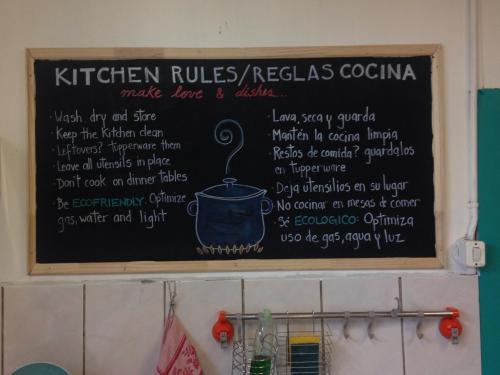 KITCHEN RULES/REGLAS COCINA
make love & dishes...
· Wash, dry and store
· Keep the kitchen clean
· Leftovers? Tupperware them
· Leave all utensils in place
· Don't cook on dinner tables
· Be ECOFRIENDLY: Optimize
gas, water and light
· Lava, seca y guarda
· Mantén la cocina limpia
· Restos de comida? guardalos
en tupperware
· Deja utensilios en su lugar
· No cocinar en mesas de comer
· Sé ECOLOGICO: Optimiza
uso de gas, agua y luz